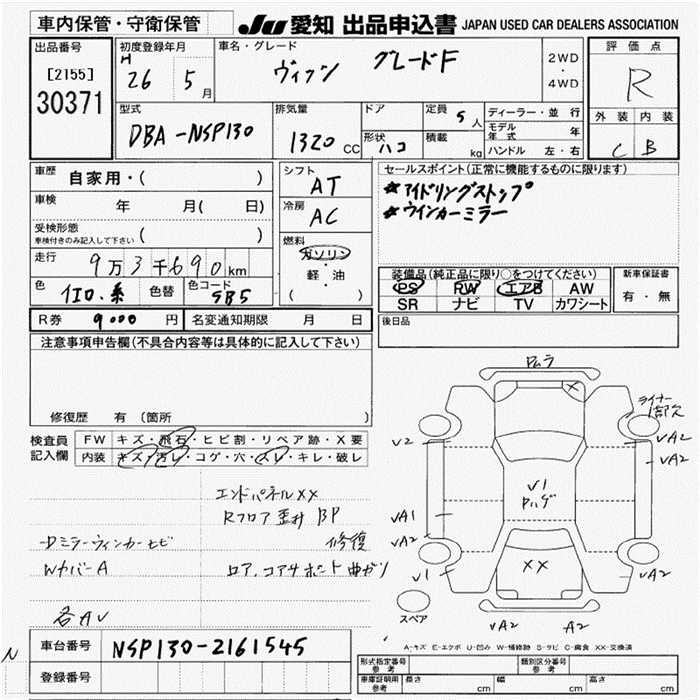 車内保管・守衛保管
JU 愛知 出品申込書 JAPAN USED CAR DEALERS ASSOCIATION
出品番号
[2155]
30371
初度登録年月
H 26 5 月
車名・グレード
ヴィッツ グレードF
2WD
・
4WD
評価点
R
外装 内装
C B
型式
DBA-NSP130
排気量
1320 CC
ドア
形状 ハコ
定員 5 人
積載 kg
ディーラー・並行
モデル年式 年
ハンドル 左・右
車歴 自家用・( )
車検 年 月( 日)
受検形態
車検付きのみ記入して下さい ( )
走行 9万3千690km
色 イエロ.系 色替 色コード 5B5
シフト
AT
冷房
AC
燃料
ガソリン
・
軽・油
( )
セールスポイント(正常に機能するものに限ります)
*アイドリングストップ
*ウインカーミラー
装備品(純正品に限り○をつけてください)
PS PW エアB AW
SR ナビ TV カワシート
新車保証書
有・無
R券 9000 円 名変通知期限 月 日
後日品
注意事項申告欄(不具合内容等は具体的に記入して下さい)
修復歴 有(箇所 )
検査員記入欄
FW キズ・飛石・ヒビ割・リペア跡・X要
内装 キズ・汚レ・コゲ・穴・スレ・キレ・破レ
エンドパネルXX
Rフロア歪ミ BP
修復
Dミラーウィンカーヒビ
WカバーA
コア.コアサポート曲ガリ
各AV
ロムラ
ライナー1部欠
V2
VA2
VA2
V1
ハゲ
VA1
VA2
V1
XX
VA2
スペア
VA2
A2
A-キズ E-エクボ U-凹み W-補修跡 S-サビ C-腐食 XX-交換済
N
車台番号 NSP130-2161545
登録番号
形式指定番号参考
類別区分番号参考
車庫証明用参考 長さ cm 幅 cm 高さ cm